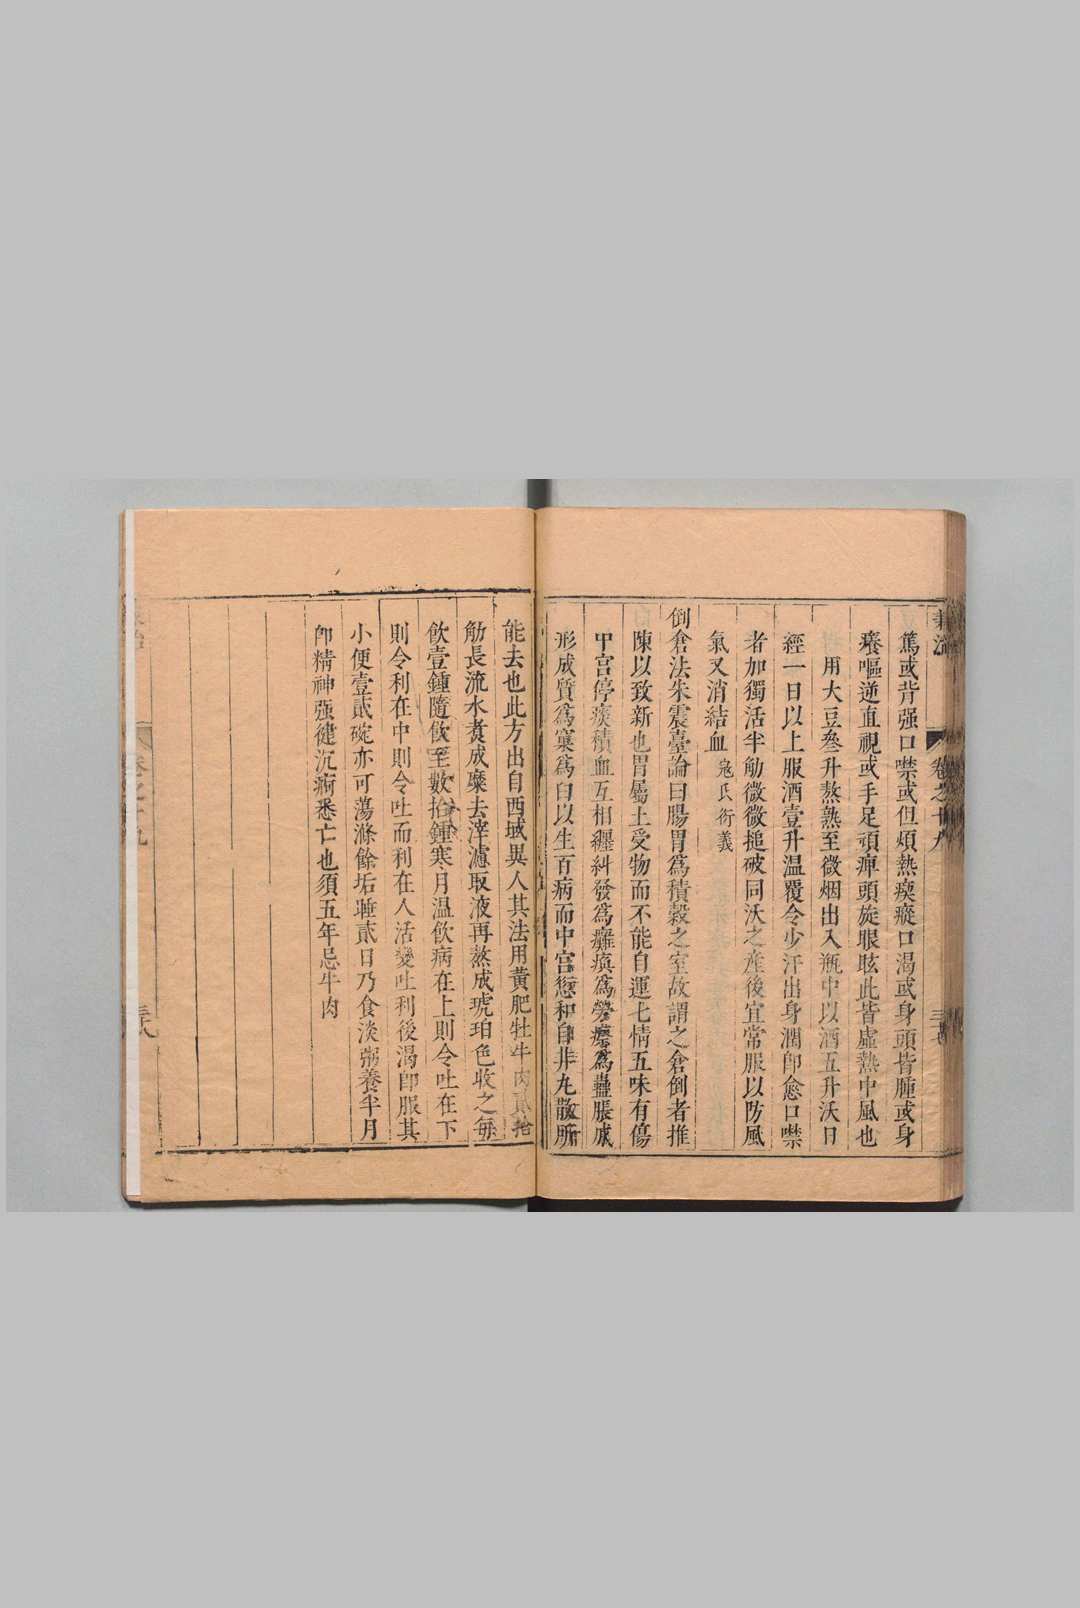 卷之十九
篤或背强口噤或但煩熱瘈瘲口渴或身頭皆腫或身
癢嘔逆直視或手足頑痺頭旋眼眩此皆虛熱中風也
用大豆叁升熬熟至微烟出入瓶中以酒五升沃日
經一日以上服酒壹升温覆令少汗出身潤卽愈口噤
者加獨活半觔微微搥破同沃之產後宜常服以防風
氣又消結血 宼氏衍義
倒倉法朱震臺論曰腸胃爲積穀之室故謂之倉倒者推
陳以致新也胃屬土受物而不能自運七情五味有傷
中宮停痰積血互相纒糾發爲癱瘓爲勞瘵爲蠱脹成
形成質爲窠爲臼以生百病而中宮愆和自非丸散所
能去也此方出自西域異人其法用黃肥牡牛肉貳拾
觔長流水煮成糜去滓濾取液再熬成琥珀色收之每
飲壹鍾隨飲至數拾鍾寒月温飲病在上則令吐在下
則令利在中則令吐而利在人活變吐利後渴卽服其
小便壹貳碗亦可蕩滌餘垢睡貳日乃食淡粥養半月
卽精神强健沉痾悉亡也須五年忌牛肉